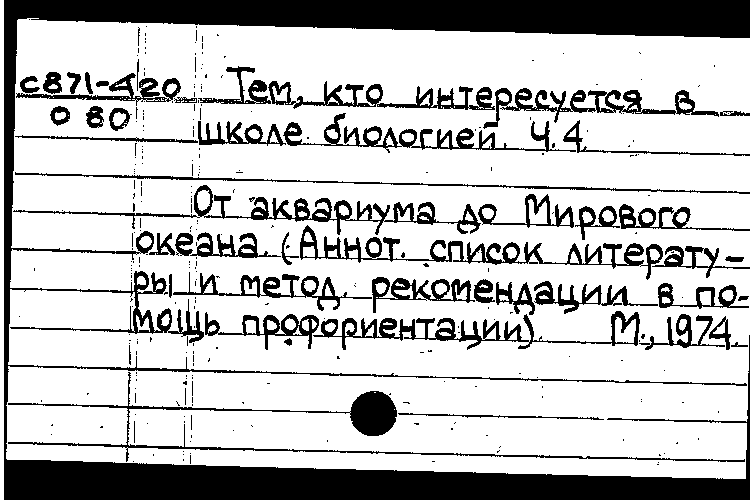 с871-420 Тем, кто интересуется в
0 80
школе биологией. Ч.4.
От аквариума до Мирового
океана. (Аннот. список литерату-
ры и метод. рекомендации в по-
мощь профориентации). М., 1974.